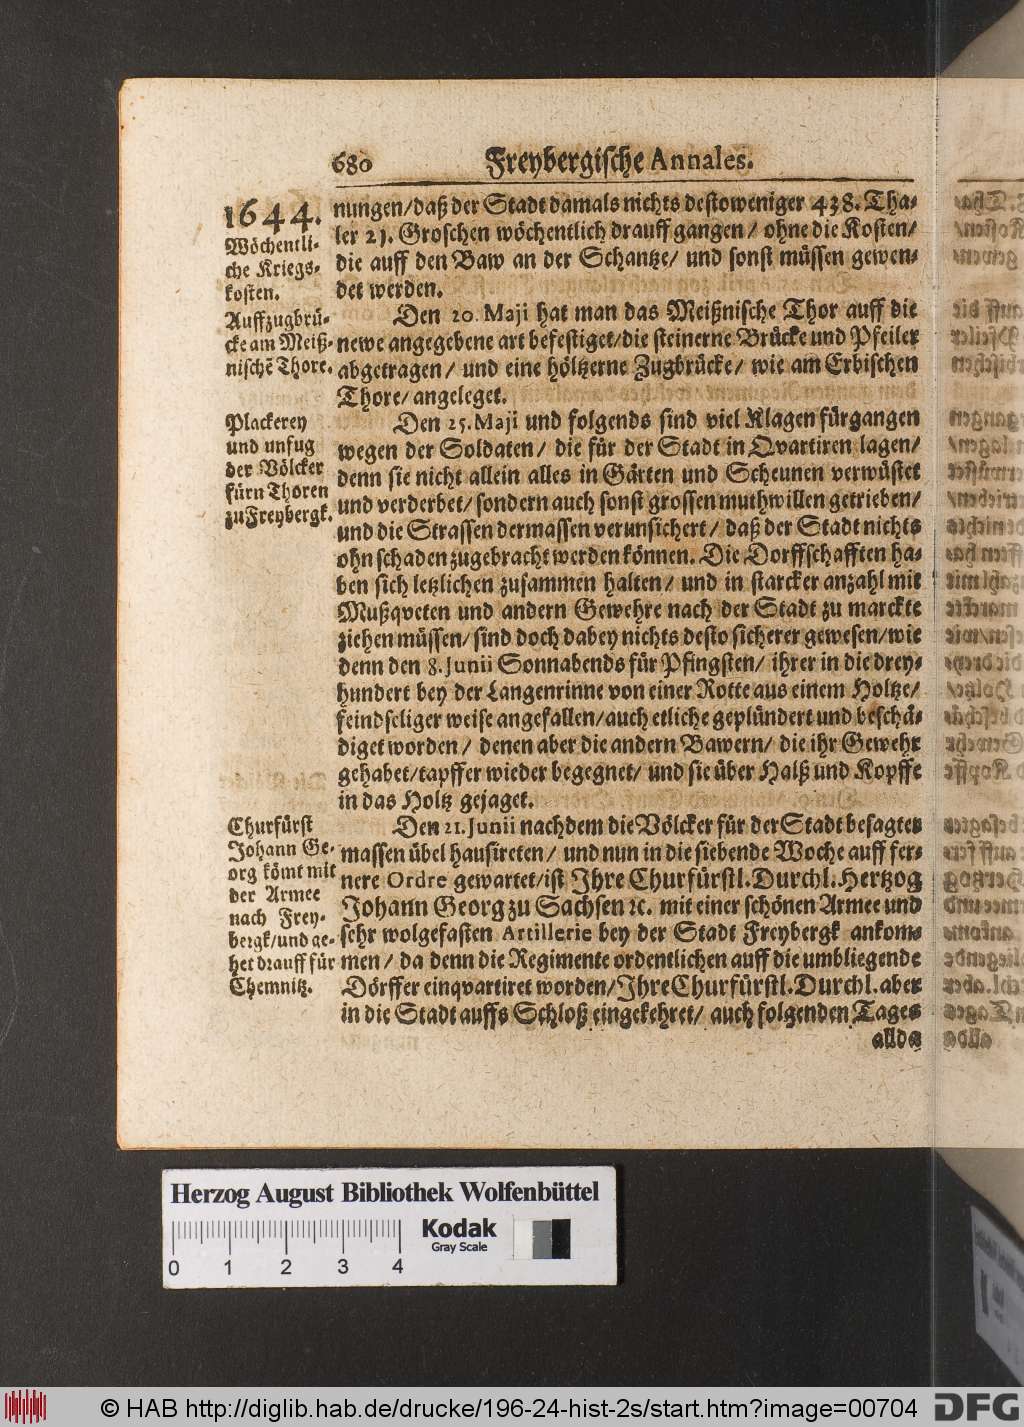 680 Freybergische Annales.
1644.
Wöchentli-
che Kriegs-
kosten.
Auffzugbrü-
cke am Meiß-
nischẽ Thore.
Plackerey
und unfug
der Völcker
fürn Thoren
zu Freybergk.
Churfürst
Johann Ge-
org kömt mit
der Armee
nach Frey-
bergk/und ge-
het drauff für
Chemnitz.
nungen/daß der Stadt damals nichts destoweniger 438. Tha-
ler 21. Groschen wöchentlich drauff gangen/ ohne die Kosten/
die auff den Baw an der Schantze/ und sonst müssen gewen-
det werden.
Den 20. Maji hat man das Meißnische Thor auff die
newe angegebene art befestiget/die steinerne Brücke und Pfeiler
abgetragen/ und eine höltzerne Zugbrücke/ wie am Erbischen
Thore/ angeleget.
Den 25. Maji und folgends sind viel Klagen fürgangen
wegen der Soldaten/ die für der Stadt in Qvartiren lagen/
denn sie nicht allein alles in Gärten und Scheunen verwüstet
und verderbet/ sondern auch sonst grossen muthwillen getrieben/
und die Strassen dermassen verunsichert/ daß der Stadt nichts
ohn schaden zugebracht werden können. Die Dorffschafften ha-
ben sich letzlichen zusammen halten/ und in starcker anzahl mit
Mußqveten und andern Gewehre nach der Stadt zu marckte
ziehen müssen/ sind doch dabey nichts desto sicherer gewesen/wie
denn den 8. Junii Sonnabends für Pfingsten/ ihrer in die drey-
hundert bey der Langenrinne von einer Rotte aus einem Holtze/
feindseliger weise angefallen/auch etliche geplündert und beschä-
diget worden/ denen aber die andern Bawern/ die ihr Gewehr
gehabet/tapffer wieder begegnet/ und sie über Halß und Kopffe
in das Holtz gejaget.
Den 21. Junii nachdem die Völcker für der Stadt besagter
massen übel hausireten/ und nun in die siebende Woche auff fer-
nere Ordre gewartet/ist Ihre Churfürstl. Durchl. Hertzog
Johann Georg zu Sachsen ꝛc. mit einer schönen Armee und
sehr wolgefasten Artillerie bey der Stadt Freybergk ankom-
men/ da denn die Regimente ordentlichen auff die umbliegende
Dörffer einqvartiret worden/Ihre Churfürstl. Durchl. aber
in die Stadt auffs Schloß eingekehret/ auch folgenden Tages
allda
Herzog August Bibliothek Wolfenbüttel
0 1 2 3 4
Kodak
Gray Scale
© HAB http://diglib.hab.de/drucke/196-24-hist-2s/start.htm?image=00704
DFG